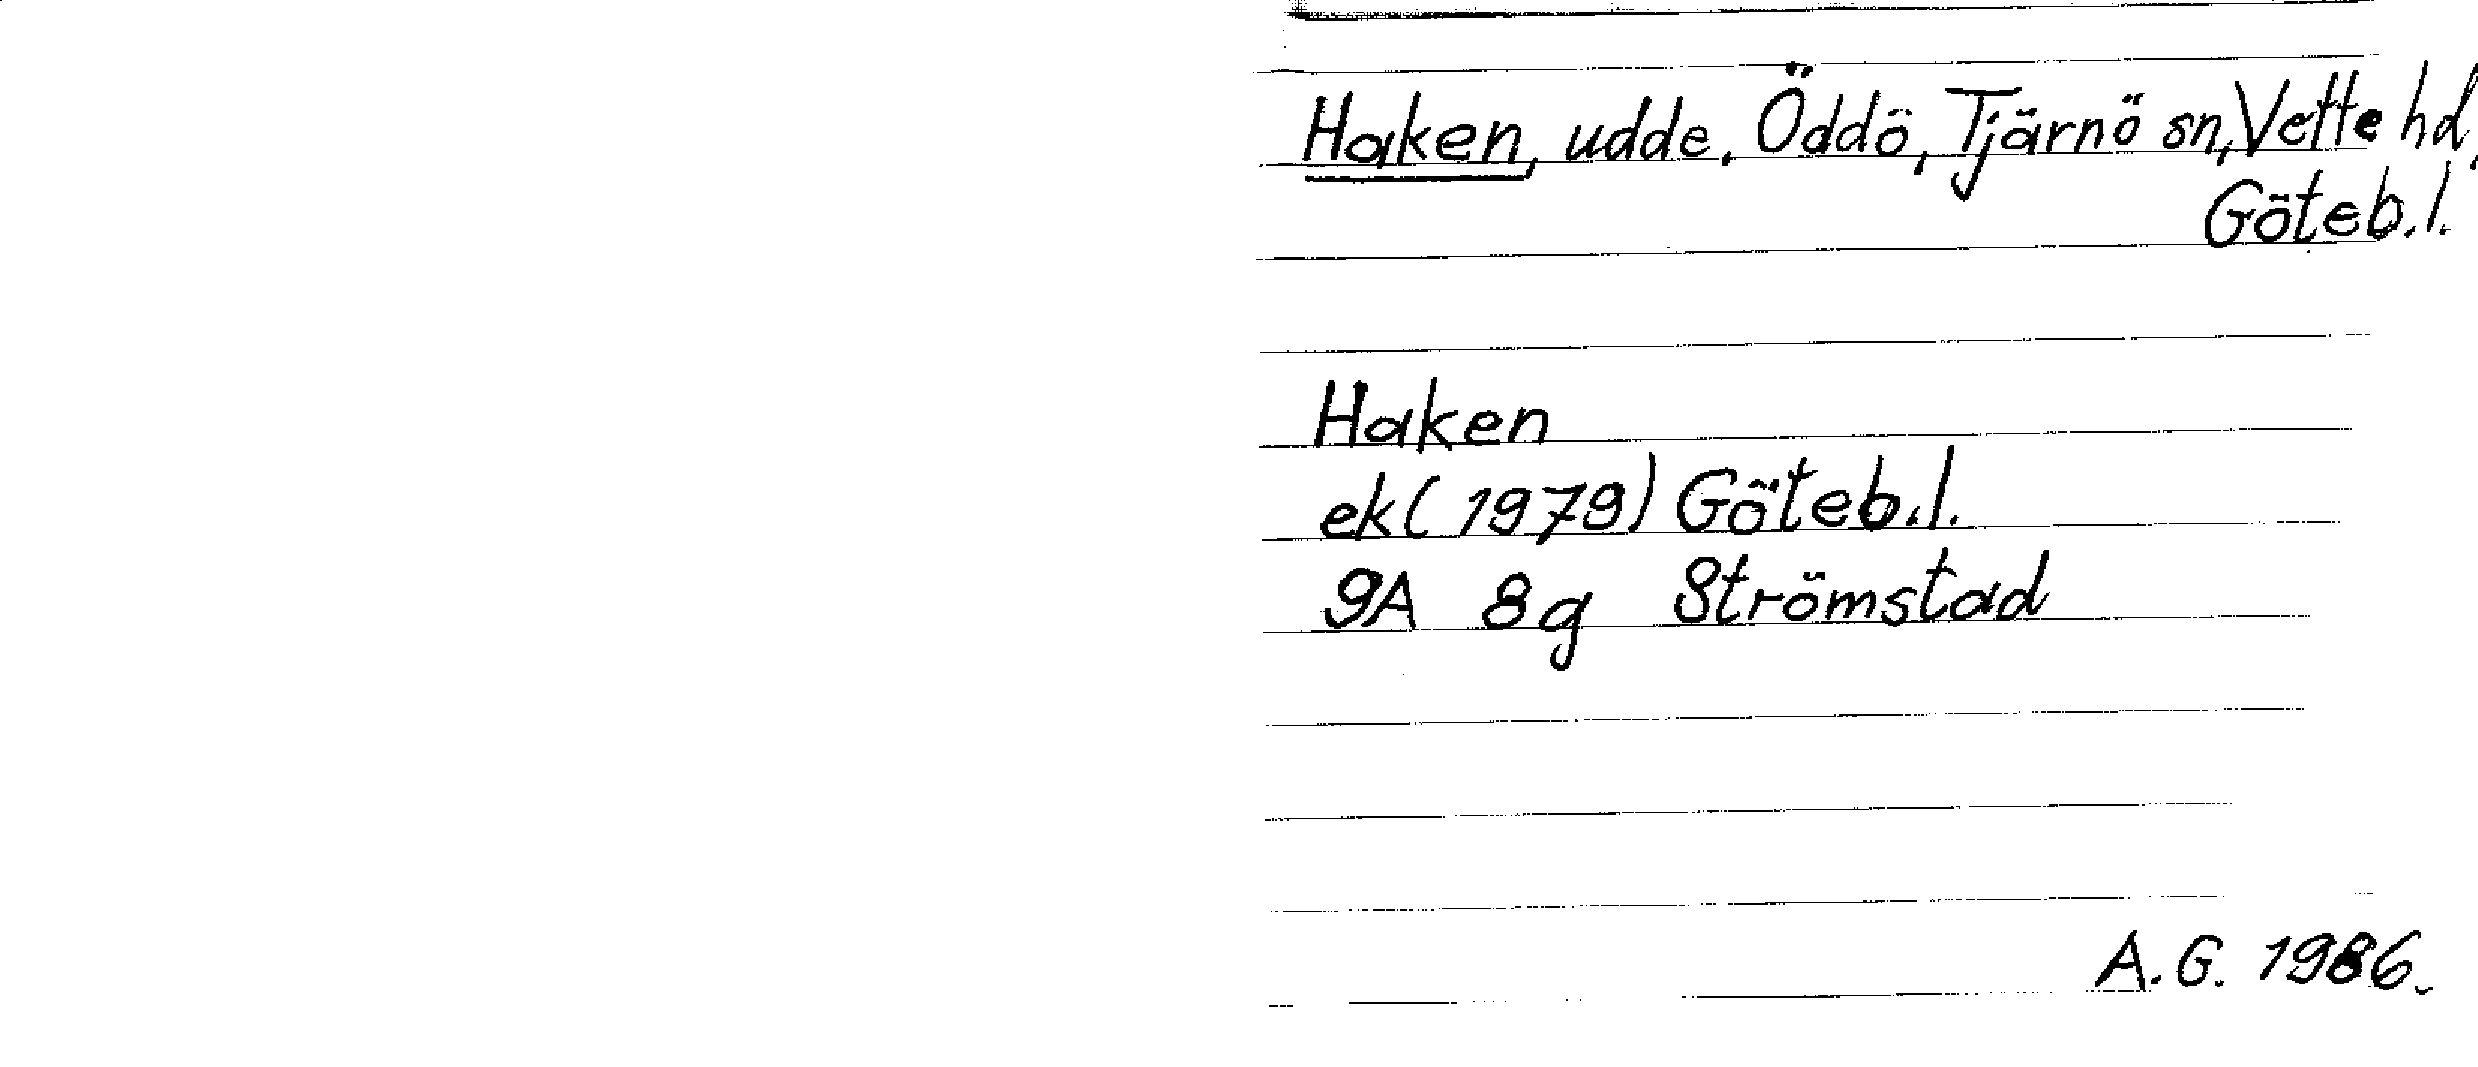 Haken, udde, Öddö, Tjärnö sn, Vette hd,
Göteb.l.
Haken
ek (1979) Göteb.l.
9A 8g Strömstad
A.G. 1986.